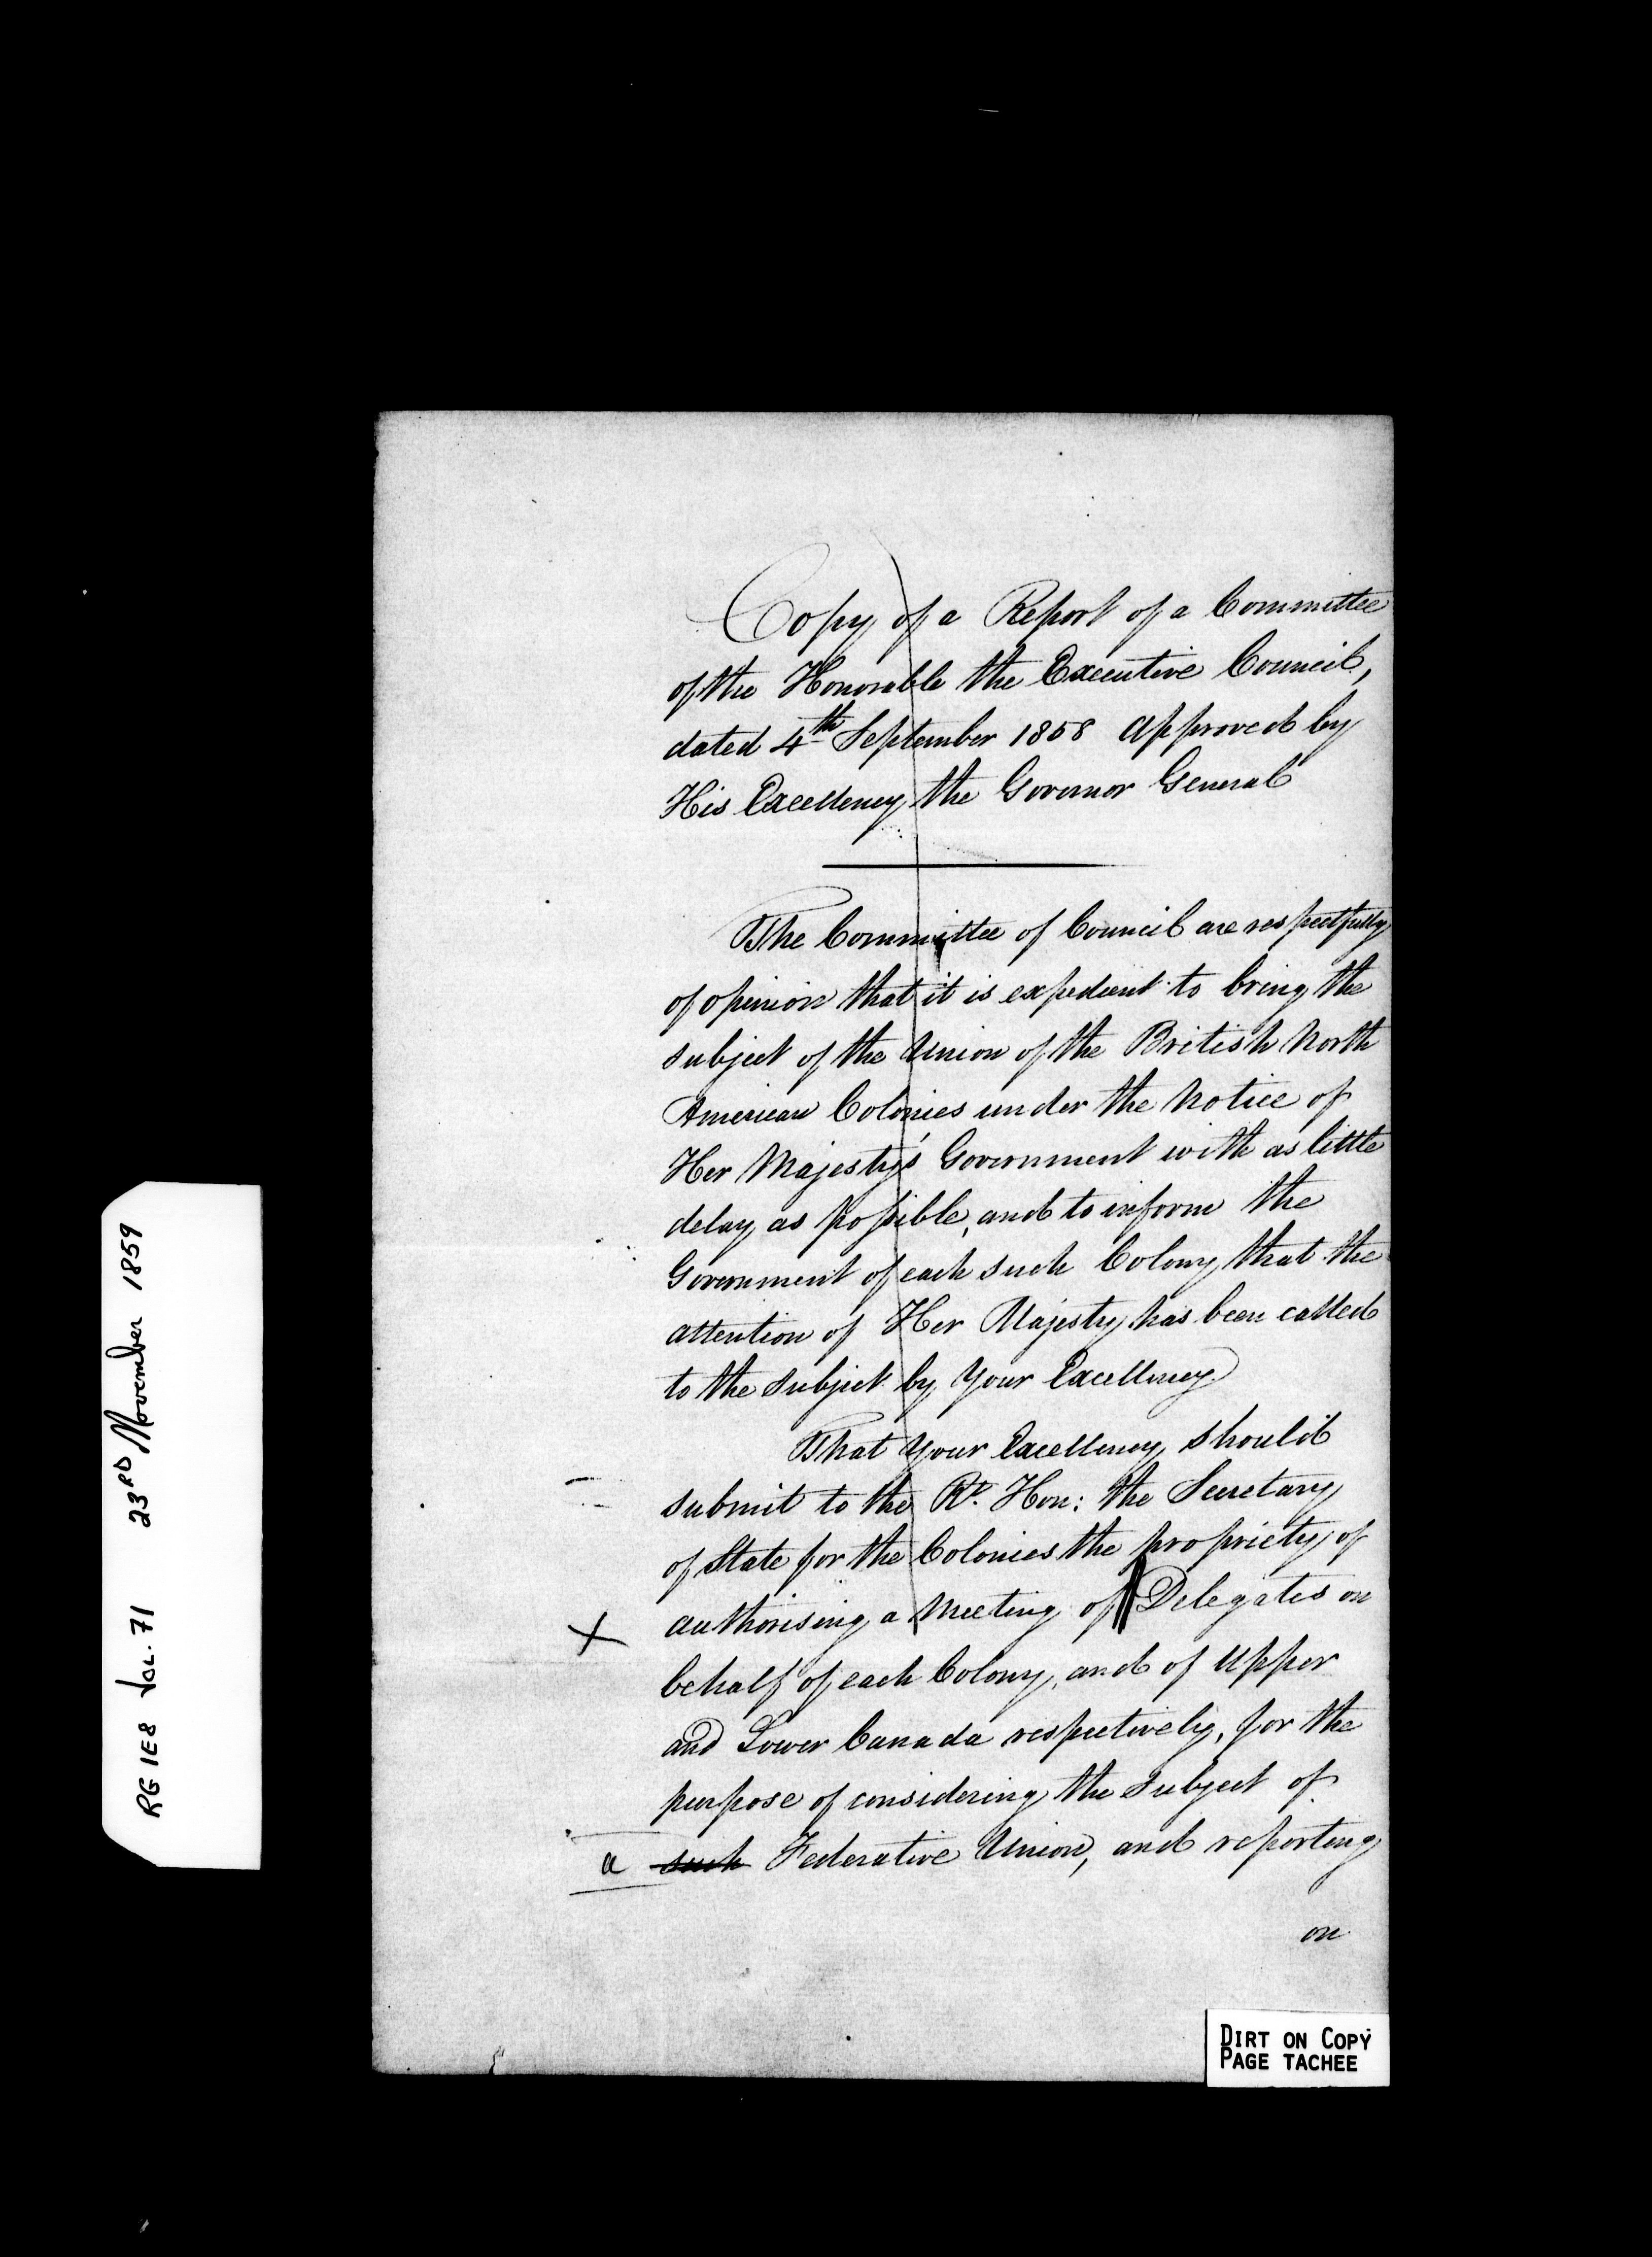 Copy of a Report of a Committee
of the Honorable the Executive Council,
dated 4th September 1858 Approved by
His Excellency the Governor General
The Committee of Council are respectfully
of opinion that it is expedient to bring the
subject of the Union of the British North
American Colonies under the Notice of
Her Majesty's Government with as little
delay as possible, and to inform the
Government of each such Colony that the
attention of Her Majesty has been called
to the subject by Your Excellency
That Your Excellency should
submit to the Rt. Hon: the Secretary
of State for the Colonies the propriety of
X authorising a Meeting of Delegates on
behalf of each Colony, and of Upper
and Lower Canada respectively, for the
purpose of considering the subject of
a such Federative Union, and reporting
on
RG 1E8 Vol. 71 23RD November 1859
DIRT ON COPY
PAGE TACHEE